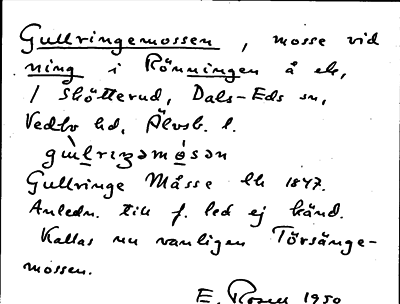 Gullringemossen, mosse vid
ning i Rönningen å ek,
/ Skötterud, Dals-Eds sn,
Vedbo hd, Älvsb. l.
Gullringe Måsse lk 1847.
Anledn. till f. led ej känd.
Kallas nu vanligen Törsänge-
mossen.
E. Rosell 1950